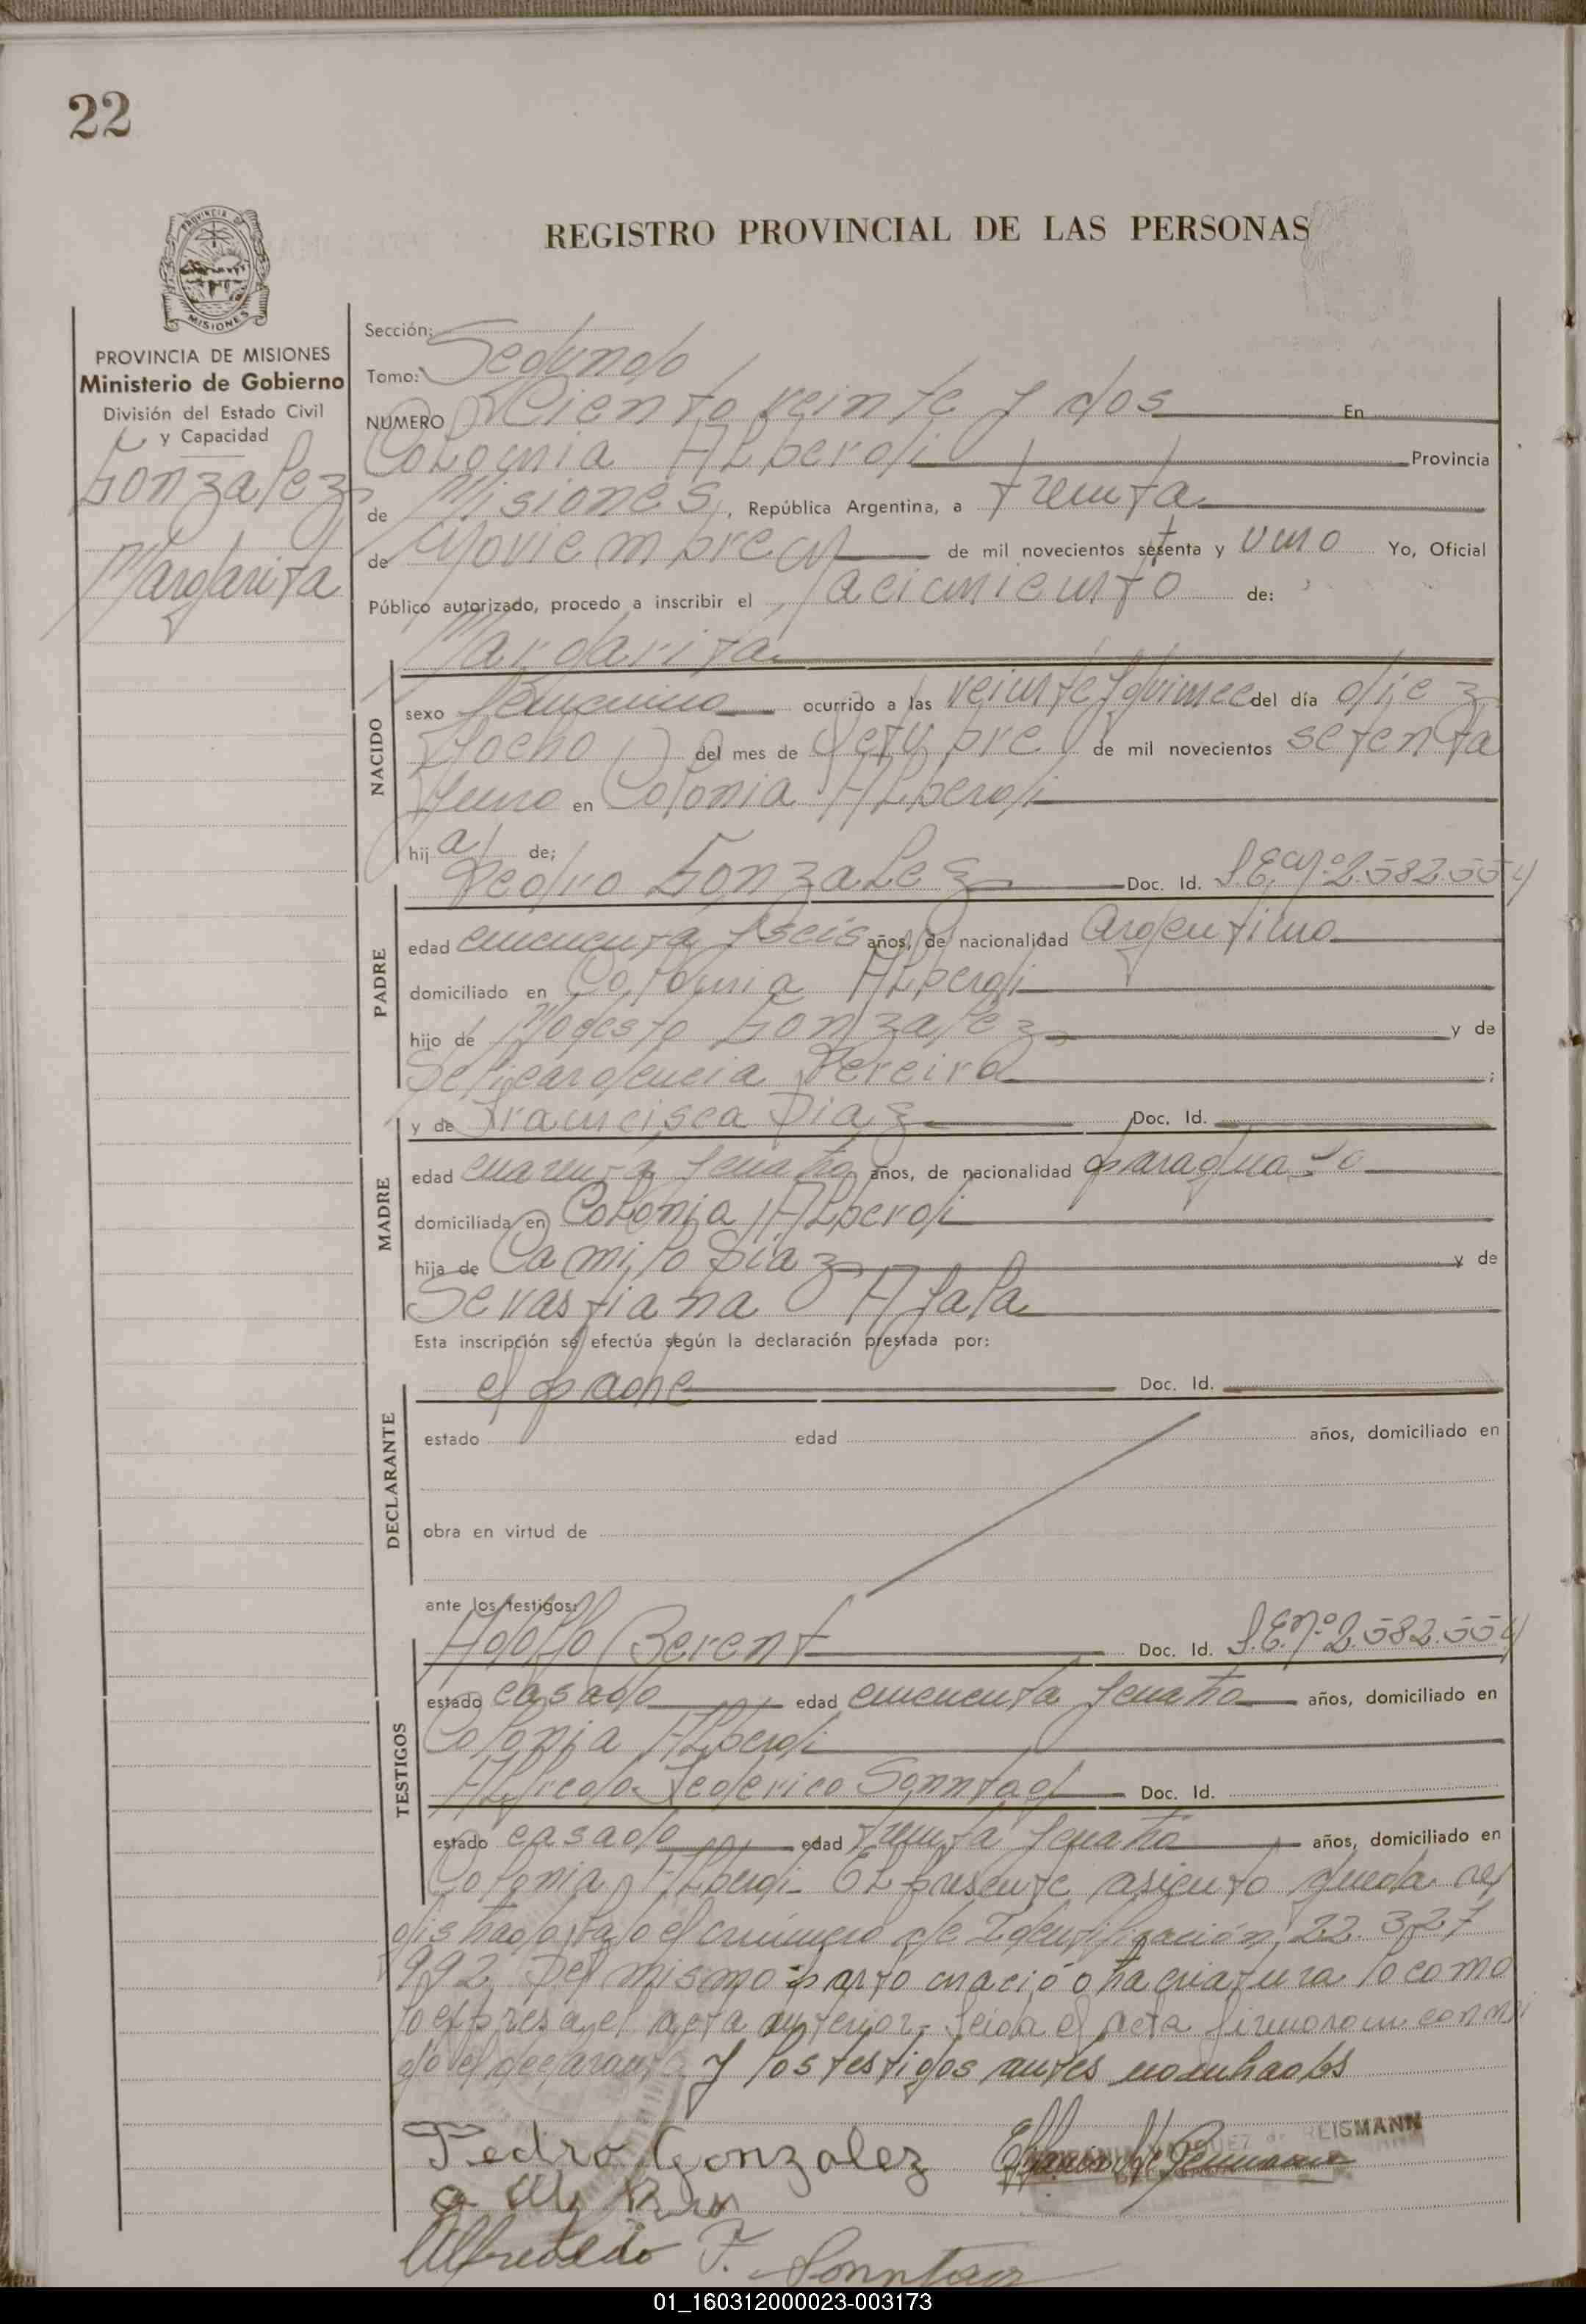 22
REGISTRO PROVINCIAL DE LAS PERSONAS
PROVINCIA DE MISIONES
Ministerio de Gobierno
División del Estado Civil
y Capacidad
Gonzalez
Margarita
Sección:
Tomo: Segundo
NUMERO Ciento veinte y dos En
Colonia ALberdi Provincia
de Misiones, República Argentina, a treinta
de Noviembre de mil novecientos setenta y uno Yo, Oficial
Público autorizado, procedo a inscribir el Nacimiento de:
Margarita
NACIDO
sexo femenino ocurrido a las veinte y quince del día diez
y ocho del mes de Octubre de mil novecientos setenta
y uno en Colonia ALberdi
hija de;
PADRE
Pedro Gonzalez Doc. Id. L.E.Nº2.582.554
edad cincuenta y seis años, de nacionalidad Argentino
domiciliado en Colonia ALberdi
hijo de Modesto Gonzalez y de
Pereira ;
MADRE
y de Francisca Diaz Doc. Id.
edad cuarenta y cuatro años, de nacionalidad paraguaya
domiciliada en Colonia ALberdi
hija de Camilo Diaz y de
Sevastiana Ayala
Esta inscripción se efectúa según la declaración prestada por:
DECLARANTE
el padre Doc. Id.
estado edad años, domiciliado en
obra en virtud de
ante los testigos:
TESTIGOS
Adolfo Berent Doc. Id. L.E.Nº2.582.554
estado casado edad cincuenta y cuatro años, domiciliado en
Colonia ALberdi
ALfredo Federico Sonntag Doc. Id.
estado casado edad treinta y cuatro años, domiciliado en
Colonia ALberdi- EL presente asiento queda re
gistrado bajo el número de Identificación 22.327
992 Del mismo parto nació otra criatura lo como
lo expresa el acta anterior- leida el acta firmaron conmi
go el declarante y los testigos antes nombrados
Pedro Gonzalez
REISMANN
Alfredo F. Sonntag
01_160312000023-003173